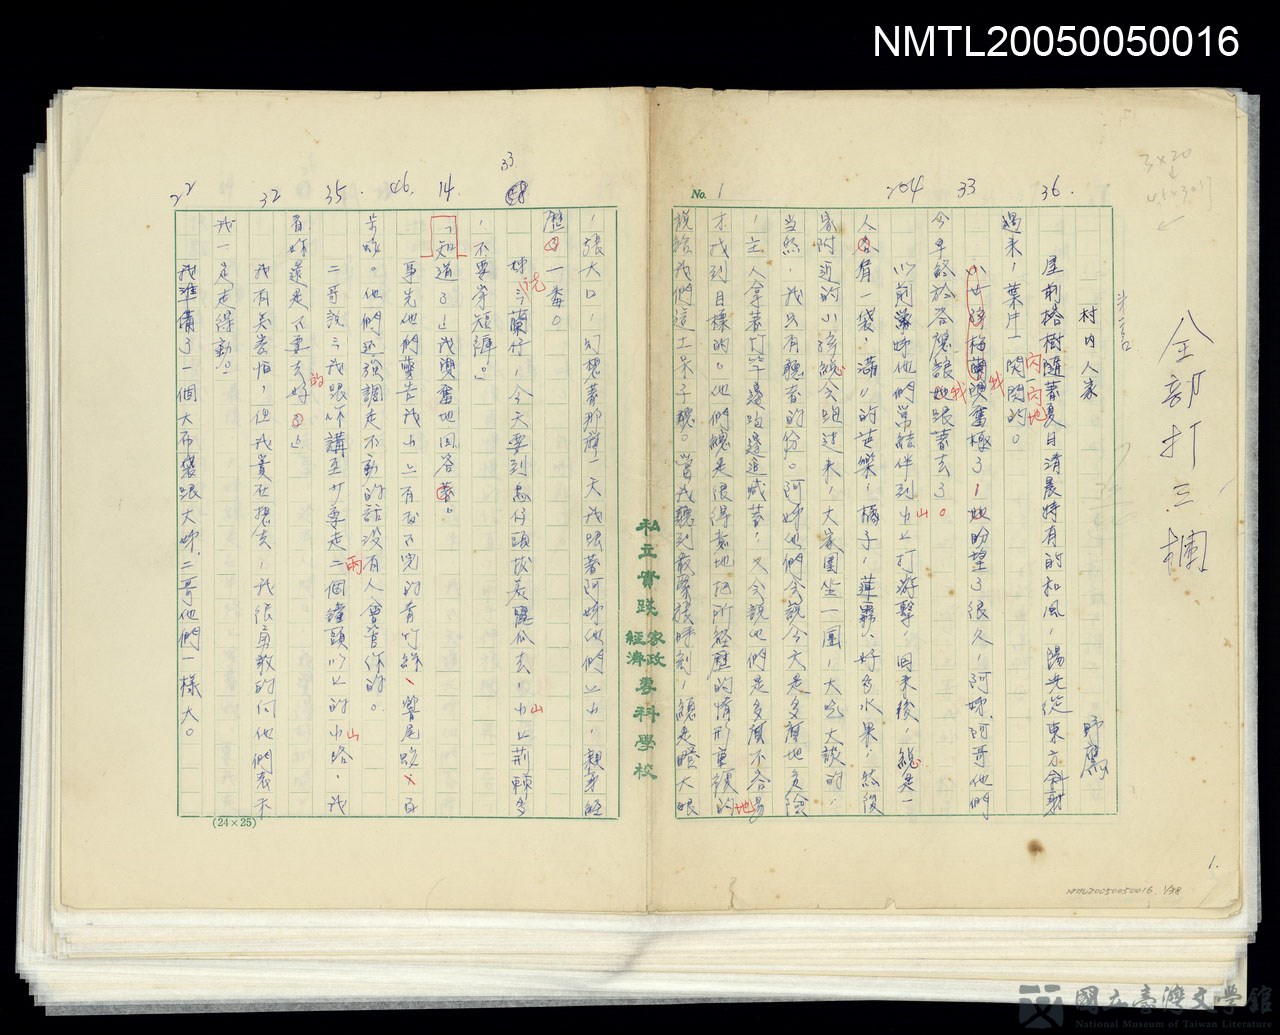 NMTL20050050016
全部打三欄
3×20
36.
33
204
No. 1
村內人家
野鷹
屋前榕樹隨著夏日清晨特有的和風,陽光從東方斜射
過來,葉片一閃一閃地閃閃的。
小女孩梅蘭興奮極了!她盼望了很久,阿姊、阿哥他們
今早終於答應讓她我跟著去了。
以前當姊他們常結伴到山上打游擊,回來後,總是一
人各肩一袋滿滿的芒菓,橘子,蓮霧、好多水果,然後
家附近的小孩總會跑過來,大家圍坐一圈,大吃大談的,
當然,我只有聽看的份。阿姊他們會說今天是多麼地危險
,主人拿著竹竿邊跑邊追喊著,又會說他們是多麼不容易
才找到目標的。他們總是很得意地把所經歷的情形重複地
說給我們這土呆子聽。當我聽到最緊接時刻,總是瞪大眼
私立實踐家政經濟專科學校
33
14.
46.
35.
32
22
,張大口,幻想著那麼一天我跟著阿姊他們上山,親身經
歷一番。
姊說:蘭仔,今天要到忠仔頭拔美濃瓜去,山上荊棘多
,不要穿短褲。」
「知道了」我興奮地回答著。
事先他們警告我山上有數不完的青竹絲、響尾蛇、百
步蛇。他們還強調走不動的話沒有人會管你的。
二哥說:我跟你講至少要走兩個鐘頭以上的山路,我
看妳還是不要去好的」
我有點害怕,但我實在想去,我很勇敢的向他們表示
我一定走得動。
我準備了一個大布袋跟大姊、二哥他們一樣大。
(24×25)
1.
NMTL20050050016. 1/38
國立臺灣文學館
National Museum of Taiwan Literature